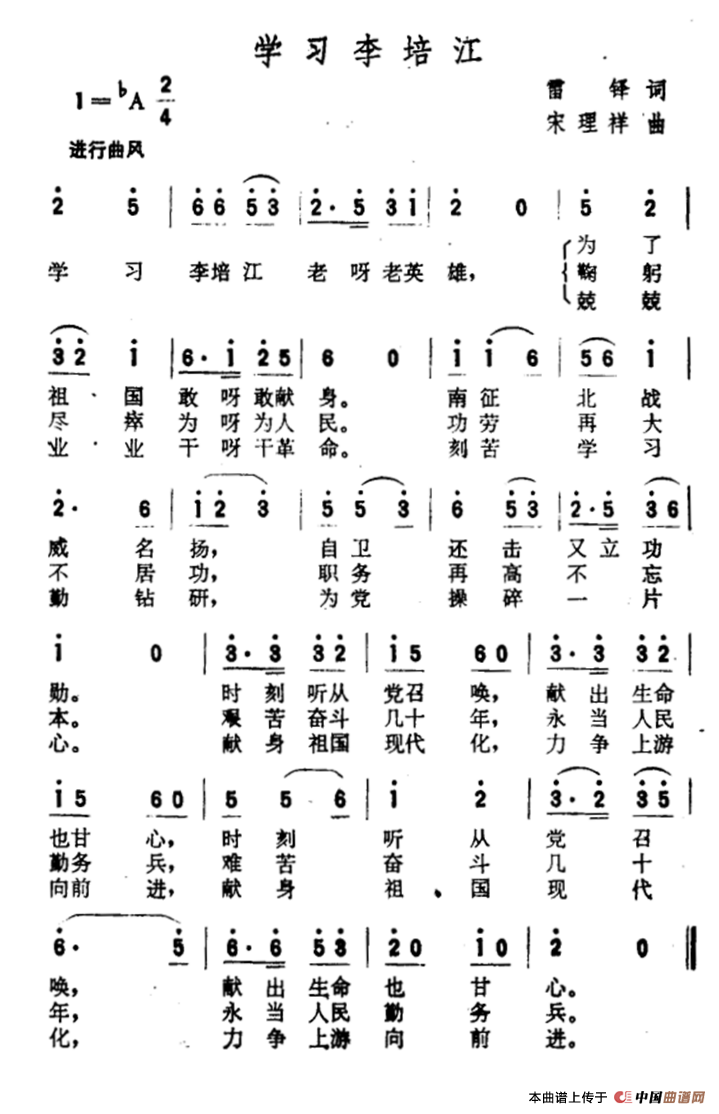 学习李培江
1=♭A 2/4
雷铎词
宋理祥曲
进行曲风
2 5 | 6 6 5 3 | 2·5 3 1 | 2 0 | 5 2 |
为了
学习李培江老呀老英雄，鞠躬
兢兢
3 2 1 | 6·1 2 5 | 6 0 | 1 1 6 | 5 6 1 |
祖国敢呀敢献身。南征北战
尽瘁为呀为人民。功劳再大
业业干呀干革命。刻苦学习
2· 6 | 1 2 3 | 5 5 3 | 6 5 3 | 2·5 3 6 |
威名扬，自卫还击又立功
不居功，职务再高不忘
勤钻研，为党操碎一片
1 0 | 3·3 3 2 | 1 5 6 0 | 3·3 3 2 |
勋。时刻听从党召唤，献出生命
本。艰苦奋斗几十年，永当人民
心。献身祖国现代化，力争上游
1 5 6 0 | 5 5 6 | 1 2 | 3·2 3 5 |
也甘心，时刻听从党召
勤务兵，难苦奋斗几十
向前进，献身祖国现代
6· 5 | 6·6 5 3 | 2 0 1 0 | 2 0 ‖
唤，献出生命也甘心。
年，永当人民勤务兵。
化，力争上游向前进。
本曲谱上传于 中国曲谱网